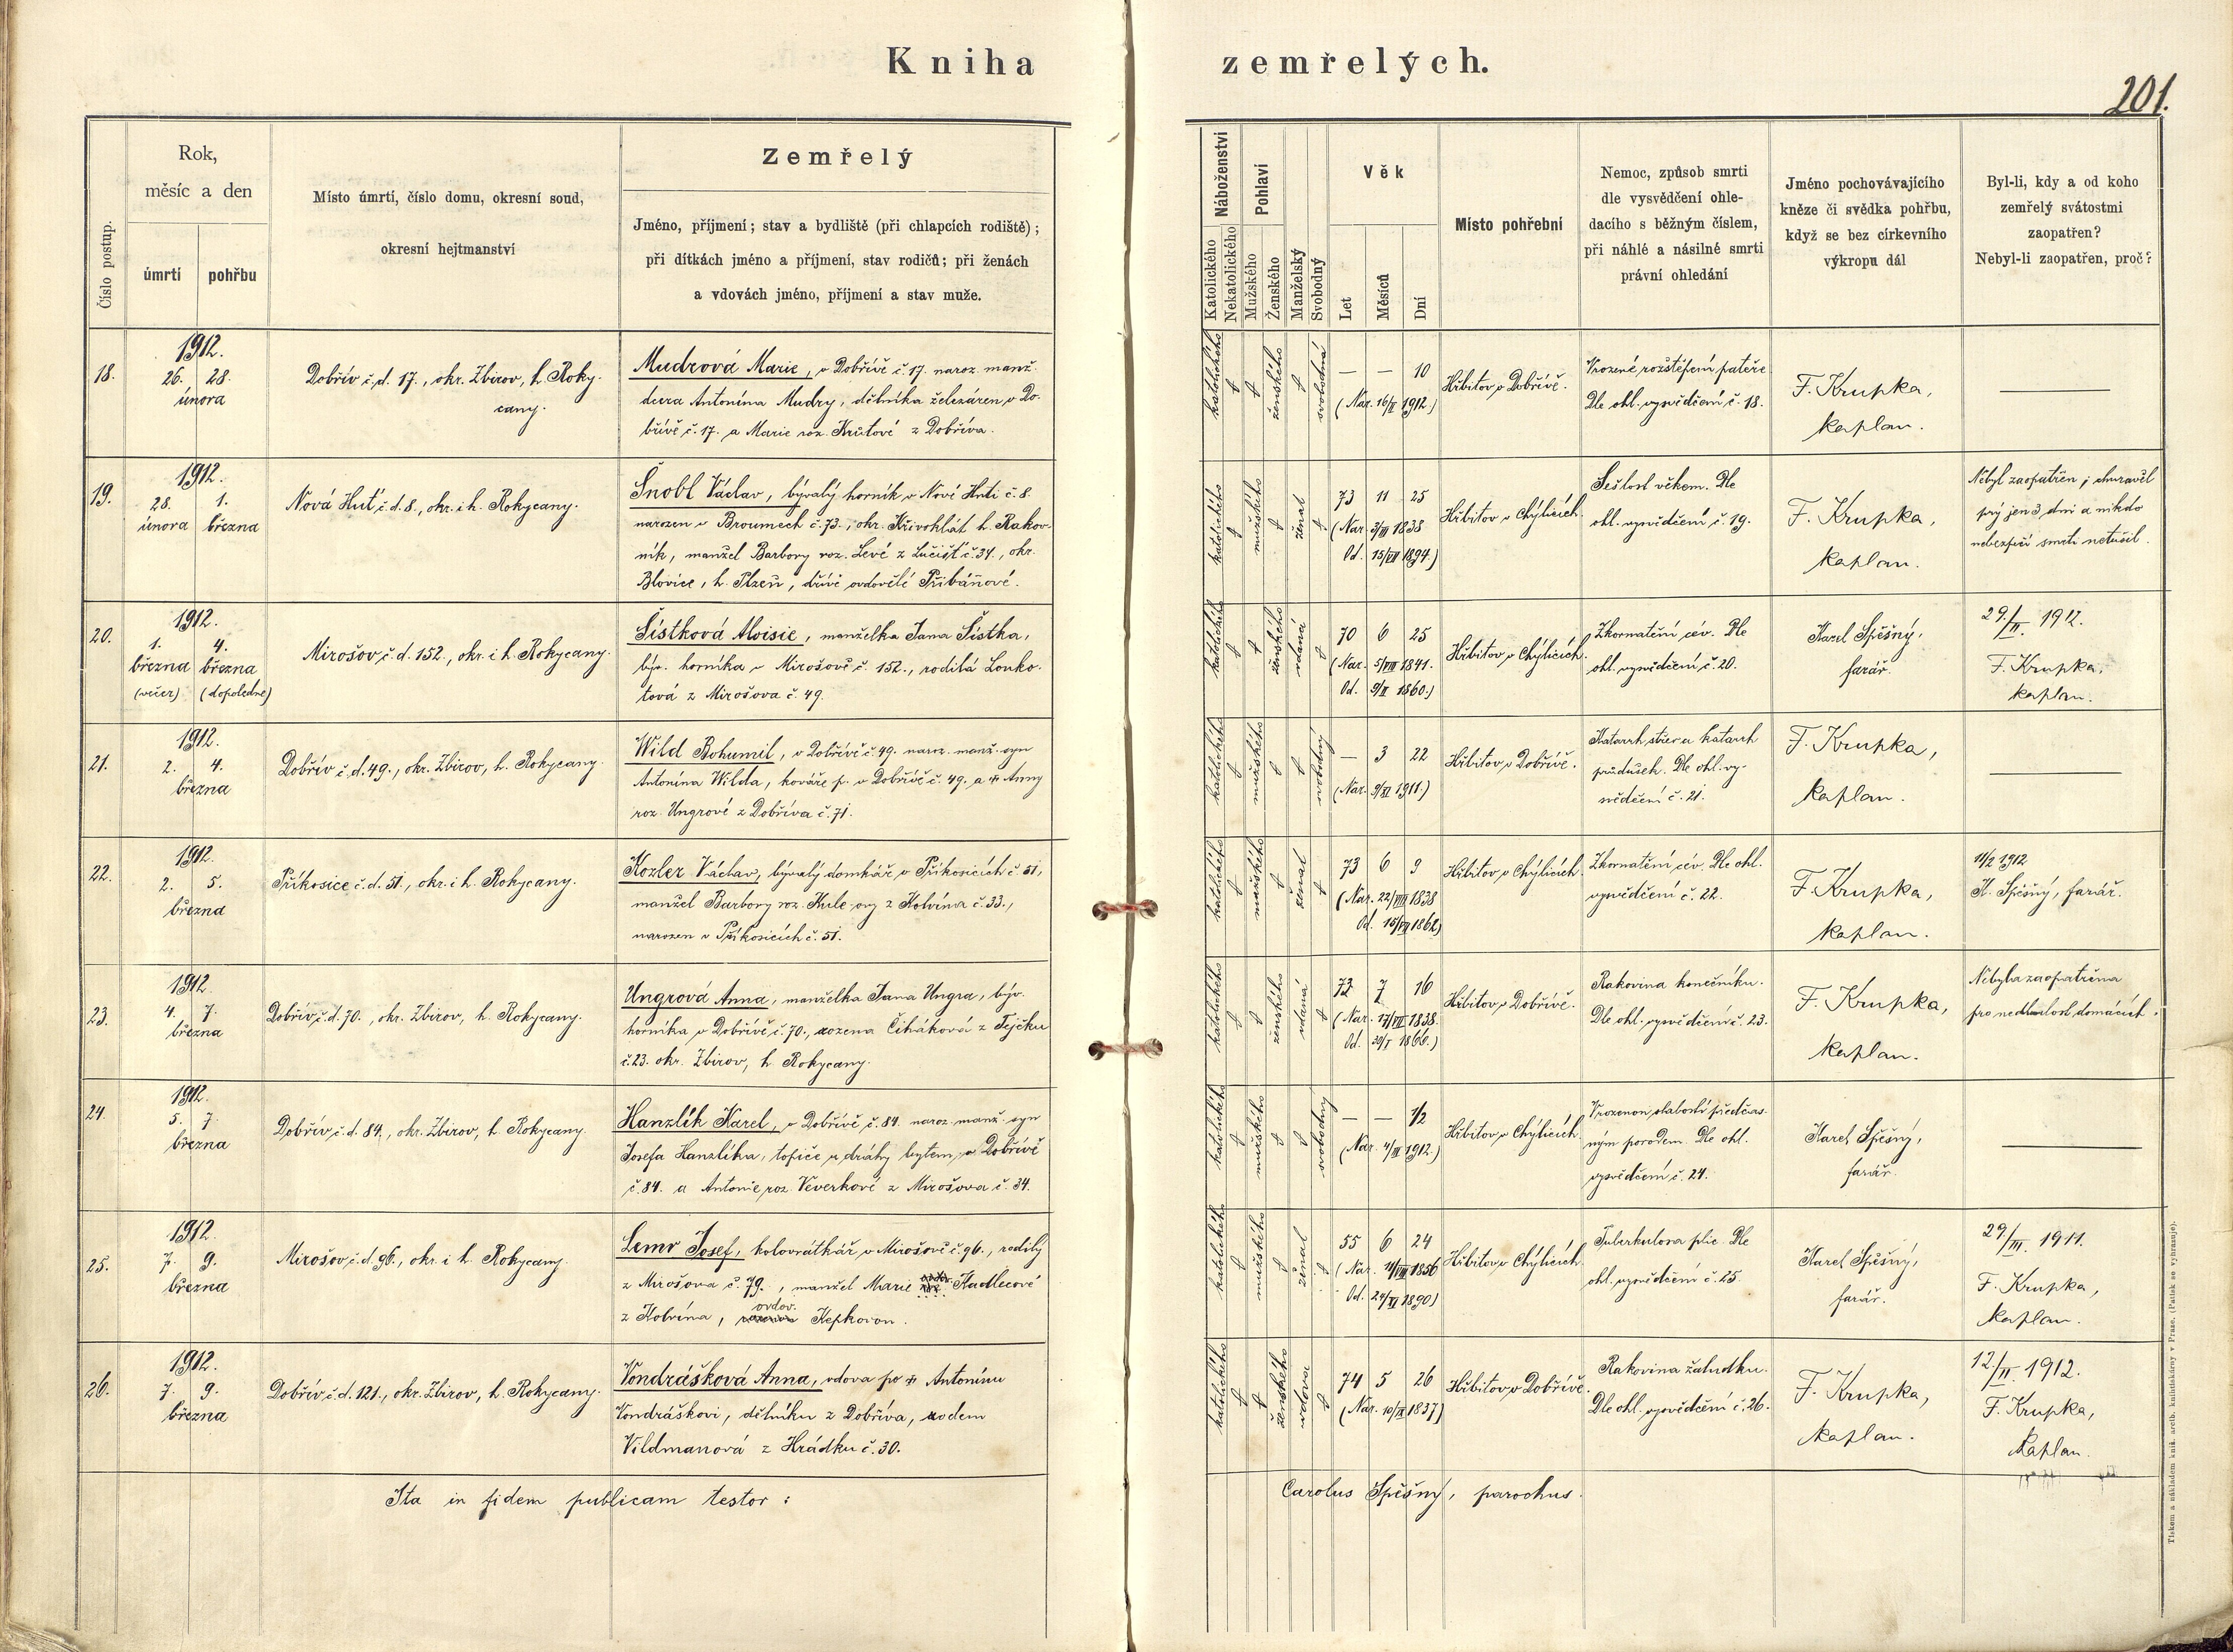 Kniha zemřelých.
201.
Číslo postup.
Rok,
měsíc a den
úmrtí
pohřbu
Místo úmrtí, číslo domu, okresní soud,
okresní hejtmanství
Zemřelý
Jméno, příjmení; stav a bydliště (při chlapcích rodiště);
při dítkách jméno a příjmení, stav rodičů; při ženách
a vdovách jméno, příjmení a stav muže.
Náboženství
Katolického
Nekatolického
Pohlaví
Mužského
Ženského
Manželský
Svobodný
Věk
Let
Měsíců
Dní
Místo pohřební
Nemoc, způsob smrti
dle vysvědčení ohle-
dacího s běžným číslem,
při náhlé a násilné smrti
právní ohledání
Jméno pochovávajícího
kněze či svědka pohřbu,
když se bez církevního
výkropu dál
Byl-li, kdy a od koho
zemřelý svátostmi
zaopatřen?
Nebyl-li zaopatřen, proč?
18.
1912.
26. 28.
února
Dobřív č. d. 17., okr. Zbirov, h. Roky-
cany.
Mudrová Marie, v Dobřívě č. 17. naroz. manž.
dcera Antonína Mudry, dělníka železáren v Do-
břívě č. 17. a Marie roz. Krůtové z Dobříva.
katolického
ženského
svobodná
— — 10
(Nar. 16/II 1912.)
Hřbitov v Dobřívě.
Vrozené rozštěpení páteře
Dle ohl. vysvědčení č. 18.
F. Krupka,
kaplan.
—
19.
1912.
28. 1.
února března
Nová Huť, č. d. 8., okr. i h. Rokycany.
Šnobl Václav, bývalý horník v Nové Huti č. 8.
narozen v Broumech č. 73., okr. Křivoklát h. Rakov-
ník, manžel Barbory roz. Levé z Lučišť č. 34., okr.
Blovice, h. Plzeň, dříve ovdovělé Přibáňové.
katolického
mužského
ženat
73 11 25
(Nar. 3/III 1838
Od. 15/VII 1894.)
Hřbitov v Chýlicích.
Sešlost věkem. Dle
ohl. vysvědčení č. 19.
F. Krupka,
kaplan.
Nebyl zaopatřen; churavěl
prý jen 3 dni a nikdo
nebezpečí smrti netušil.
20.
1912.
1. 4.
března března
(večer) (dopoledne)
Mirošov, č. d. 152., okr. i h. Rokycany.
Šístková Aloisie, manželka Jana Šístka,
býv. horníka v Mirošově č. 152., rodilá Louko-
tová z Mirošova č. 49.
katolického
ženského
vdaná
70 6 25
(Nar. 5/VIII 1841.
Od. 9/II 1860.)
Hřbitov v Chýlicích.
Zkornatění cév. Dle
ohl. vysvědčení č. 20.
Karel Spěšný,
farář.
29./II. 1912.
F. Krupka,
kaplan.
21.
1912.
2. 4.
března
Dobřív č. d. 49., okr. Zbirov, h. Rokycany.
Wild Bohumil, v Dobřívě č. 49. naroz. manž. syn
Antonína Wilda, kováře p. v Dobřívě č. 49. a † Anny
roz. Ungrové z Dobříva č. 71.
katolického
mužského
svobodný
— 3 22
(Nar. 9/XI 1911.)
Hřbitov v Dobřívě.
Katarrh střev a katarrh
průdušek. Dle ohl. vy-
svědčení č. 21.
F. Krupka,
kaplan.
—
22.
1912.
2. 5.
března
Příkosice č. d. 51., okr. i h. Rokycany.
Kozler Václav, bývalý domkář v Příkosicích č. 51,
manžel Barbory roz. z Kolvína č. 33.,
narozen v Příkosicích č. 51.
katolického
mužského
ženat
73 6 9
(Nar. 22/VIII 1838
Od. 1862)
Hřbitov v Chýlicích.
Zkornatění cév. Dle ohl.
vysvědčení č. 22.
F. Krupka,
kaplan.
11/2 1912
K. Spěšný, farář.
23.
1912
4. 7.
března
Dobřív, č. d. 70., okr. Zbirov, h. Rokycany.
Ungrová Anna, manželka Jana Ungra, býv.
horníka v Dobřívě č. 70., rozena Čiháková z Těječku
č. 23. okr. Zbirov, h. Rokycany.
katolického
ženského
vdaná
73 7 16
(Nar. 17/VII 1838.
Od. 1866.)
Hřbitov v Dobřívě.
Rakovina konečníku.
Dle ohl. vysvědčení č. 23.
F. Krupka,
kaplan.
Nebyla zaopatřena
pro nedbalost domácích.
24.
1912.
5. 7.
března
Dobřív č. d. 84., okr. Zbirov, h. Rokycany.
Hanzlík Karel, v Dobřívě č. 84. naroz. manž. syn
Josefa Hanzlíka, topiče u dráhy bytem v Dobřívě
č. 84. a Antonie roz. Veverkové z Mirošova č. 34.
katolického
mužského
svobodný
— — 1/2
(Nar. 4/III 1912.)
Hřbitov v Chýlicích.
Vrozenou slabostí předčas-
ným porodem. Dle ohl.
vysvědčení č. 24.
Karel Spěšný,
farář.
—
25.
1912.
7. 9.
března
Mirošov, č. d. 96., okr. i h. Rokycany.
Lemr Josef, kolovrátkář v Mirošově č. 96., rodilý
z Mirošova č. 79., manžel Marie Kadlecové
z Kolvína, ovdov. Kepkovou.
katolického
mužského
ženat
55 6 24
(Nar. 1856
Od. 24/VI 1890)
Hřbitov v Chýlicích.
Tuberkulosa plic. Dle
ohl. vysvědčení č. 25.
Karel Spěšný,
farář.
29/III. 1911.
F. Krupka,
kaplan.
26.
1912.
7. 9.
března
Dobřív č. d. 121., okr. Zbirov, h. Rokycany.
Vondrášková Anna, vdova po † Antonínu
Vondráškovi, dělníku z Dobříva, rodem
Vildmanová z Hrádku č. 30.
katolického
ženského
vdova
74 5 26
(Nar. 10/IX 1837)
Hřbitov v Dobřívě.
Rakovina žaludku.
Dle ohl. vysvědčení č. 26.
F. Krupka,
kaplan.
12./II. 1912.
F. Krupka,
Kaplan.
Ita in fidem publicam testor: Carolus Spěšný, parochus.
Tiskem a nákladem kníž. arcib. knihtiskárny v Praze. (Patisk se vyhrazuje).